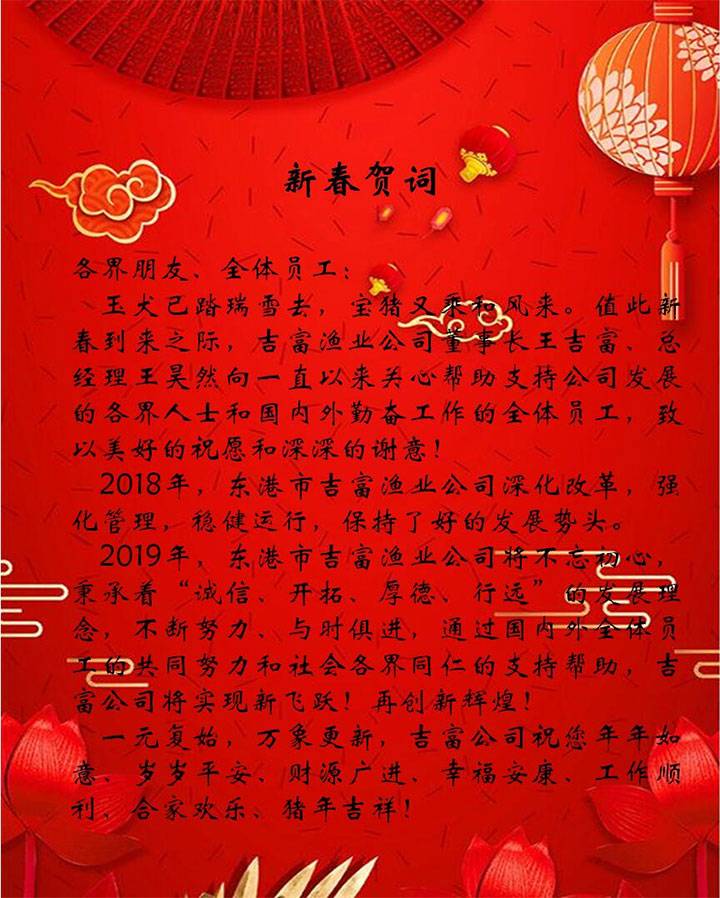 新春贺词
各界朋友、全体员工：
玉犬已踏瑞雪去，宝猪又乘和风来。值此新
春到来之际，吉富渔业公司董事长王吉富、总
经理王昊然向一直以来关心帮助支持公司发展
的各界人士和国内外勤奋工作的全体员工，致
以美好的祝愿和深深的谢意！
2018年，东港市吉富渔业公司深化改革，强
化管理，稳健运行，保持了好的发展势头。
2019年，东港市吉富渔业公司将不忘初心，
秉承着“诚信、开拓、厚德、行远”的发展理
念，不断努力、与时俱进，通过国内外全体员
工的共同努力和社会各界同仁的支持帮助，吉
富公司将实现新飞跃！再创新辉煌！
一元复始，万象更新，吉富公司祝您年年如
意、岁岁平安、财源广进、幸福安康、工作顺
利、合家欢乐、猪年吉祥！